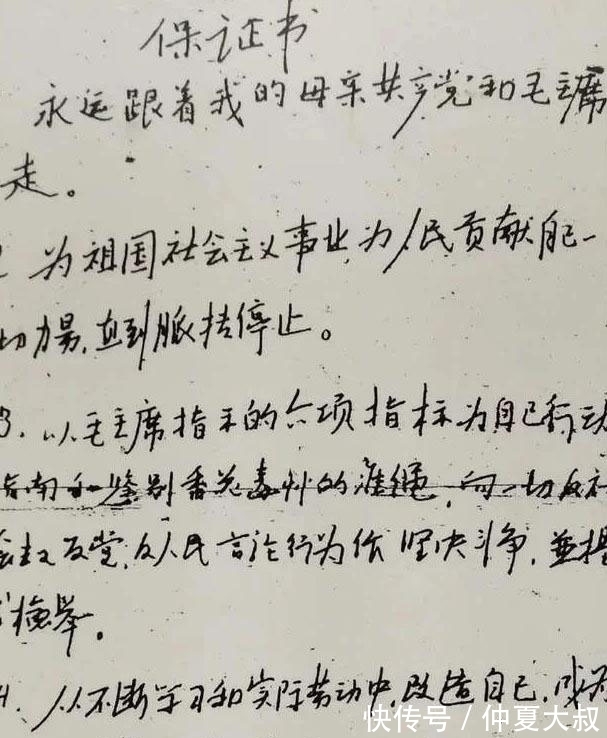 保证书
永远跟着我的母亲共产党和毛主席
走。
2 为祖国社会主义事业,为人民贡献自己一
切力量,直到脉搏停止。
3. 以毛主席指示的六项指标为自己行动
指南和鉴别香花毒草的准绳,向一切反社
会主义反党,反人民言论行为作坚决斗争,並提
检举。
4. 从不断学习和实际劳动中,改造自己,成为
快传号 / 仲夏大叔